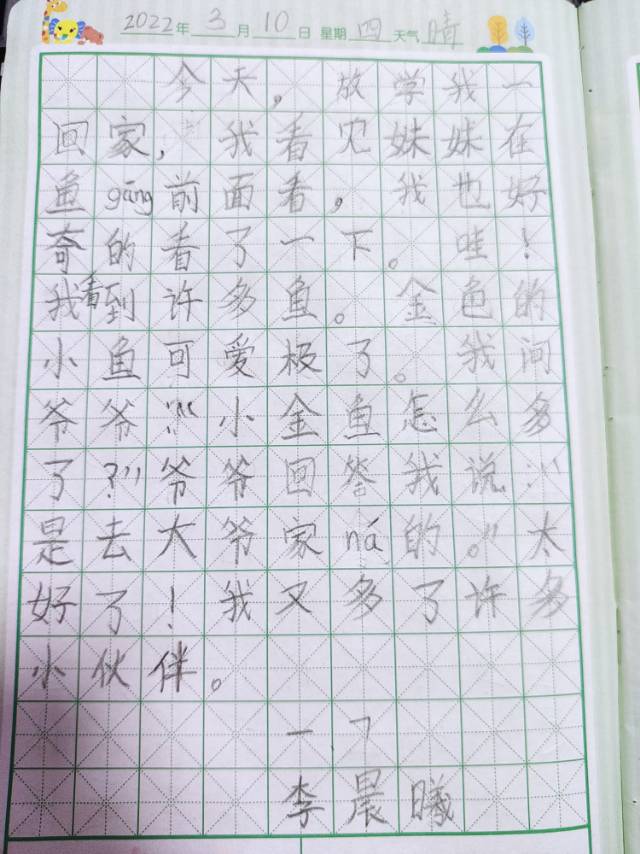 2022年3月10日 星期四 天气 晴
今天，放学我一
回家，我看见妹妹在
鱼gāng前面看，我也好
奇的看了一下。哇！
我看到许多鱼。金色的
小鱼可爱极了。我问
爷爷：“小金鱼怎么多
了？”爷爷回答我说：“
是去大爷家ná的。”太
好了！我又多了许多
小伙伴。
一 7
李晨曦